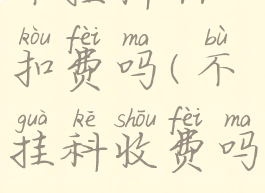 kòu fèi ma bù
扣费吗(不
guà kē shōu fèi ma
挂科收费吗